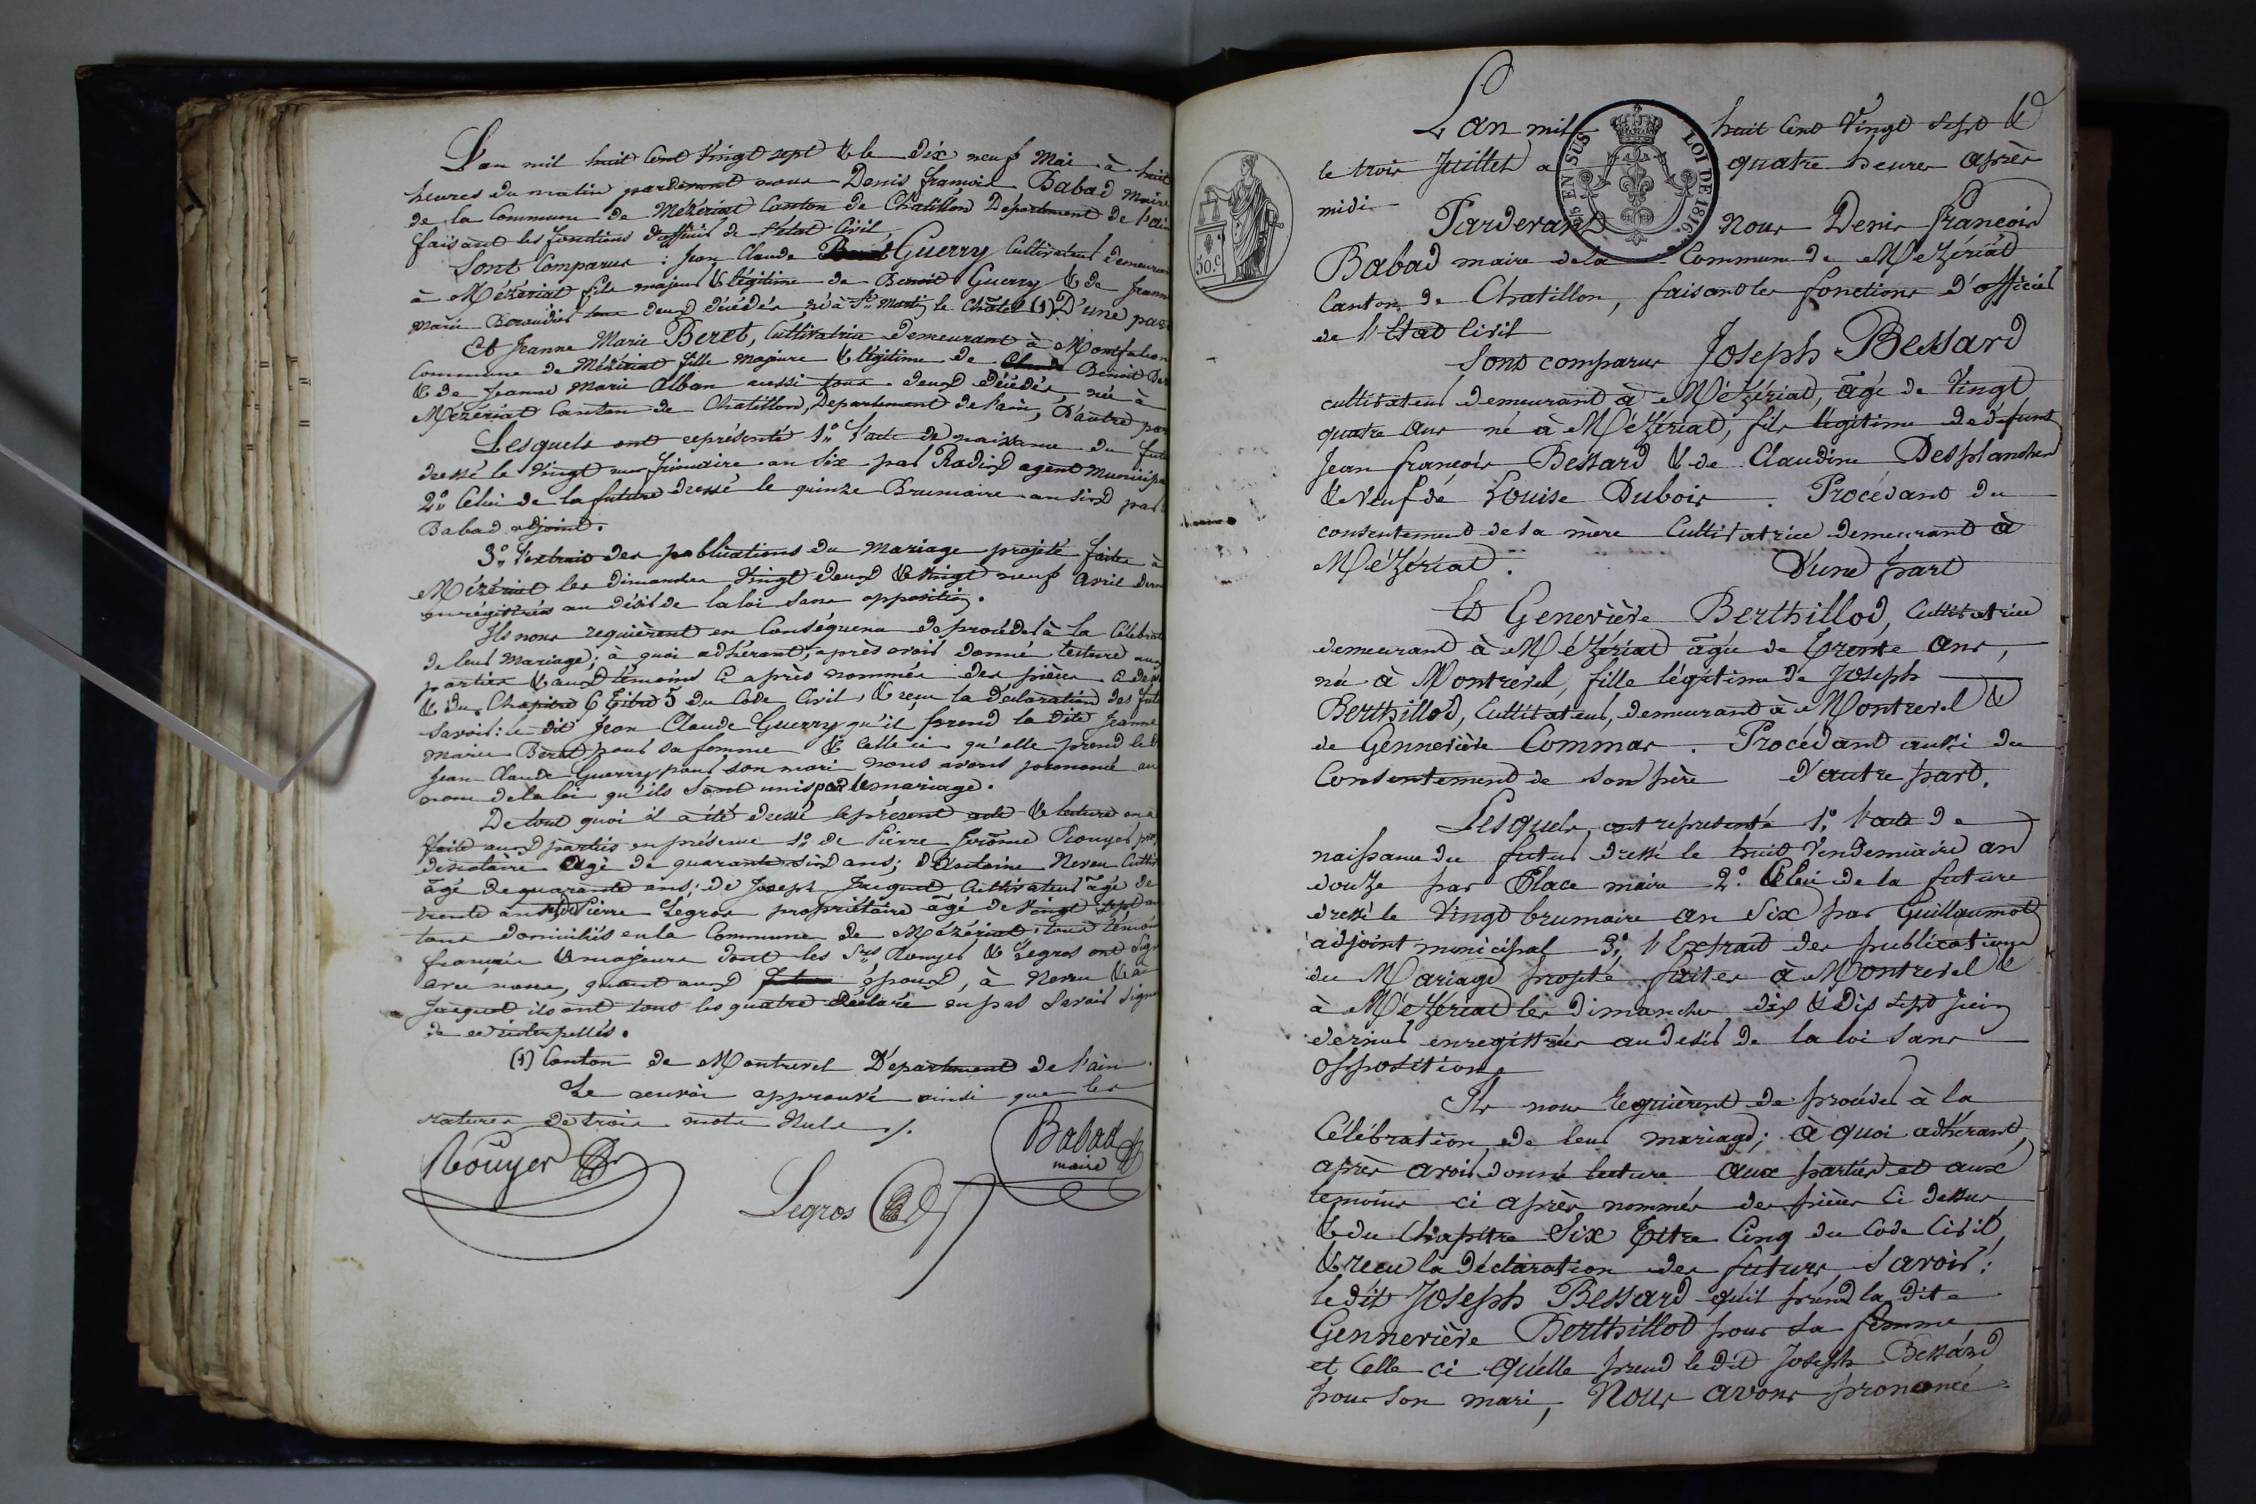 L'an mil huit Cent Vingt sept & le Dix neuf Mai à huit
heures du matin pardevant nous Denis françois Babad Maire
de la Commune de Mézériat Canton de Chatillon Département de l'ain
faisant les fonctions d'officier de l'état Civil,
Sont Comparus : Jean Claude Guerry Cultivateur demeurant
à Mézériat fils majeur & légitime de Benoit Guerry & de Jeanne
Marie deux décédés, né à St. Martin le Châtel (1) D'une part
Et Jeanne Marie Beret, Cultivatrice demeurant à Montfalcon
Commune de Mézériat fille majeure & légitime de Benoit
& de Jeanne Marie Alban aussi tous deux décédés née à
Mézériat Canton de Chatillon, Département de l'ain, D'autre part
Lesquels ont représenté 1.° l'acte de naissance du futur
dressé le Vingt frimaire an Six par agent Municipal
2.° Celui de la future dressé le quinze Brumaire an Six par
Babad adjoint.
3.° l'extrait des publications du mariage projeté faites à
Mézériat les dimanches Vingt deux & Vingt neuf avril
enrégistrées au désir de la loi Sans opposition.
Ils nous requièrent en Conséquence de procéder à la Célébration
de leur Mariage; à quoi adhérant, après avoir donné lecture aux
parties & aux témoins ci après nommés des pièces
& du Chapitre 6 titre 5 du Code Civil, & reçu la Déclaration des
Savoir: le dit Jean Claude Guerry qu'il prend la dite Jeanne
Marie Beret pour sa femme & Celle ci qu'elle prend le
Jean Claude Guerry pour son mari nous avons prononcé au
nom de la loi qu'ils Sont unis par le mariage.
De tout quoi il a été dressé le présent acte & lecture en a
faite aux parties en présence 1.° de Pierre Jérôme Rouyer
âgé de quarante six ans; d'Antoine Neveu
âgé de quarante ans; de Joseph Jacquet Cultivateur âgé de
trente ans & de Pierre Légros propriétaire âgé de Vingt sept
tous domiciliés en la Commune de Mézériat, tous témoins
français & majeurs dont les Srs Rouyer & Légros ont signé
avec nous, quant aux époux, à Neveu & à
Jacquet ils ont tous les quatre déclaré ne pas Savoir Signer
de ce interpellés.
(1) Canton de Montrevel Département de l'ain.
Le renvoi approuvé ainsi que les
ratures de trois mots Nuls ./.
Rouyer
Babad
maire
Legros
50.C
EN SUS LOI DE 1816
L'an mil huit Cent Vingt Sept &
le trois Juillet a quatre heures après
midi
Pardevant Nous Denis françois
Babad maire de la Commune de Mézériat
Canton de Chatillon, faisant les fonctions d'officier
de l'Etat Civil
Sont comparus Joseph Bessard
cultivateur demeurant à Mézériat, âgé de Vingt
quatre ans né à Mézériat, fils légitime de defunt
Jean françois Bessard & de Claudine Desplanches
& Veuf de Louise Dubois . Procédant du
consentement de sa mère Cultivatrice demeurant à
Mézériat. D'une part
Et Geneviève Berthillod, Cultivatrice
demeurant à Mézériat âgée de Trente ans,
née à Montrevel, fille légitime de Joseph
Berthillod, Cultivateur, demeurant à Montrevel &
de Gennevière Commas . Procédant aussi du
Consentement de Son père D'autre part.
Lesquels, ont représenté 1.° l'acte de
naissance du futur dressé le huit Vendemiaire an
douze par Place maire 2.° Celui de la future
dressé le Vingt brumaire an Six par Guillaumot
adjoint municipal 3.° l'Extrait des publications
du Mariage projeté faites à Montrevel &
à Mézériat les Dimanches dix & Dix Sept Juin
dernier enregistrées au desir de la loi Sans
opposition.
Ils nous requièrent de procéder à la
Célébration de leur mariage; à quoi adhérant,
après avoir donné lecture aux parties et aux
temoins ci après nommés des pièces Ci dessus,
& du Chapitre Six Titre Cinq du Code Civil,
& reçu la déclaration des futurs Savoir:
le dit Joseph Bessard quil prend la dite
Genneviève Berthillod pour Sa femme
et Celle ci qu'elle prend le dit Joseph Bessard
pour Son mari, Nous avons prononcé